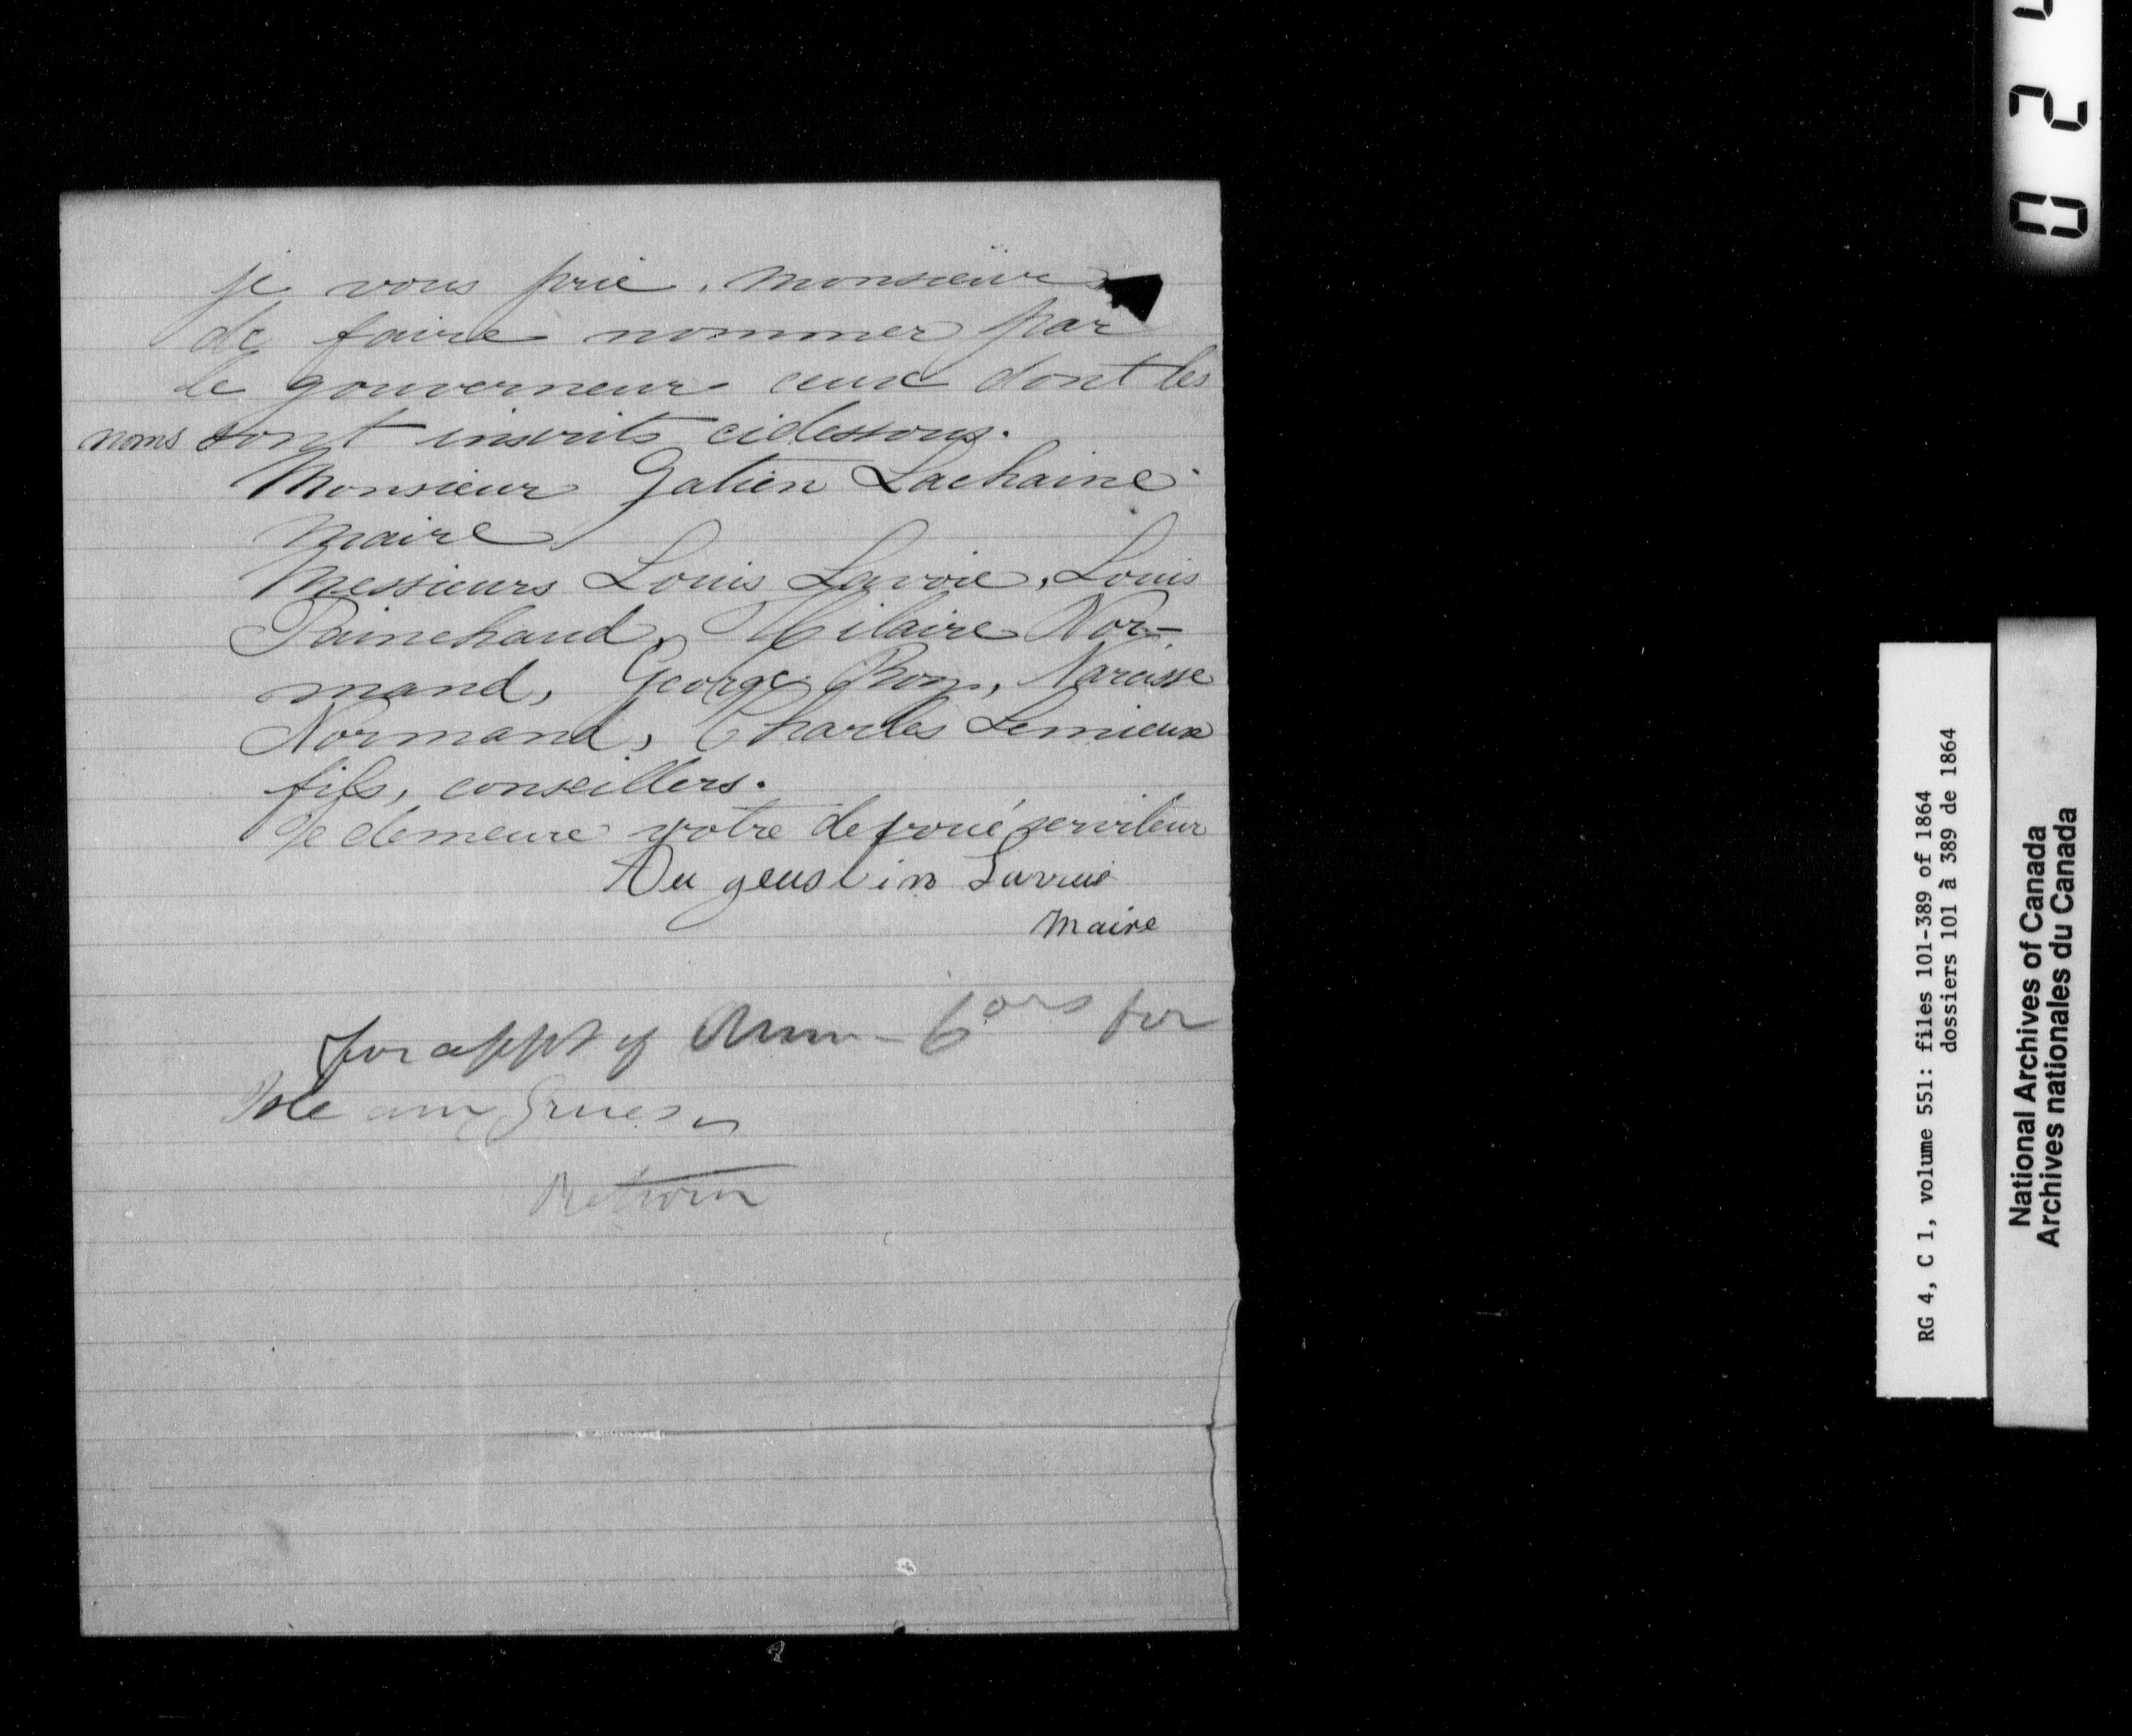 je vous prie, monsieur
de faire nommer par
le gouverneur ceux dont les
noms sont inscrits cidessous.
Monsieur Gatien Lachaine
maire
Messieurs Louis Lavoie, Louis
Painchaud, Hilaire Nor-
mand, George Roy, Narcisse
Normand, Charles Lemieux
fils, conseillers.
Je demeure votre devoué serviteur
Au geustin Lavoie
Maire
for appt of Mun - Cors for
Isle aux Grues
Return
0 2 4
RG 4, C 1, volume 551: files 101-389 of 1864
dossiers 101 à 389 de 1864
National Archives of Canada
Archives nationales du Canada